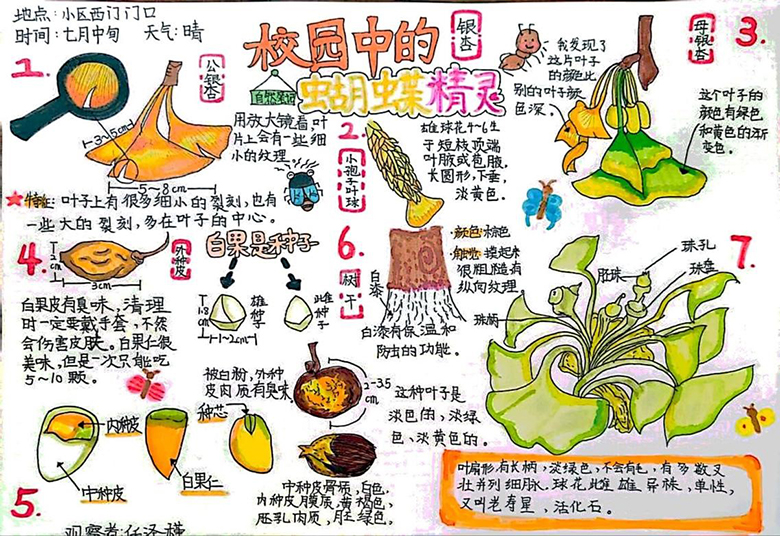 地点：小区西门门口
时间：七月中旬 天气：晴
校园中的
银杏
蝴蝶精灵
自然笔记
1.
公银杏
3~5cm
5~8cm
用放大镜看，叶
片上会有一些细
小的纹理
★特征：叶子上有很多细小的裂刻，也有
一些大的裂刻，多在叶子的中心。
2.
小孢子叶球
雄球花4~6生
于短枝顶端
叶腋或苞腋，
长圆形，下垂，
淡黄色。
3.
母银杏
我发现了
这片叶子
的颜色比
别的叶子颜
色深。
这个叶子的
颜色有绿色
和黄色的渐
变色。
4.
2cm
3cm
外种皮
白果皮有臭味，清理
时一定要戴手套，不然
会伤害皮肤。白果仁很
美味，但是一次只能吃
5~10颗。
白果是种子
1.8cm
1~2cm
雄种子
雌种子
5.
内种皮
中种皮
白果仁
种芯
被白粉，外种
皮肉质有臭味
2-3.5
cm
中种皮骨质，白色，
内种皮膜质，黄褐色，
胚乳肉质，胚绿色。
这种叶子是
淡色的、淡绿
色、淡黄色的。
6.
树干
白漆
颜色：棕色
触觉：摸起来
很粗糙有
纵向纹理。
白漆有保温和
防虫的功能。
7.
珠孔
胚珠
珠座
珠柄
叶扇形有长柄，淡绿色，不会有毛，有多数叉
状并列细脉。球花雌雄异株，单性，
又叫老寿星，活化石。
观察者：任泽槿